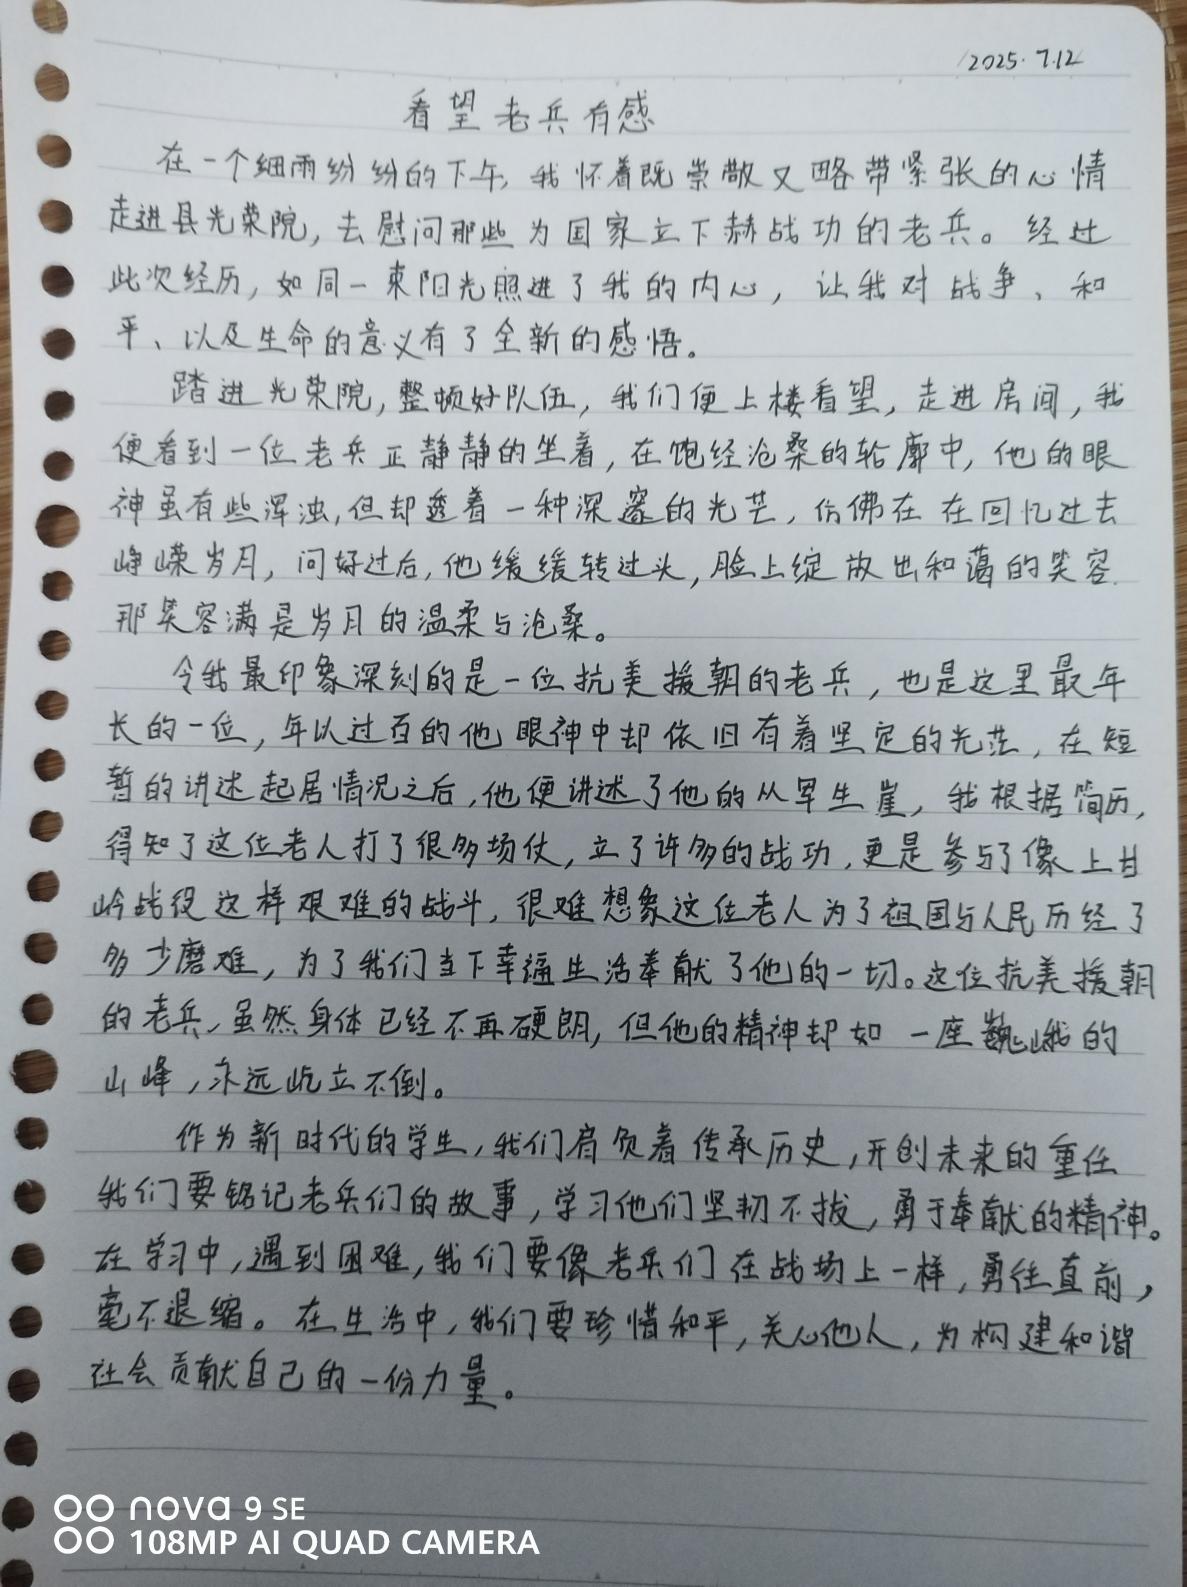 2025.7.12
看望老兵有感
在一个细雨纷纷的下午,我怀着既崇敬又略带紧张的心情
走进县光荣院,去慰问那些为国家立下赫战功的老兵。经过
此次经历,如同一束阳光照进了我的内心,让我对战争、和
平、以及生命的意义有了全新的感悟。
踏进光荣院,整顿好队伍,我们便上楼看望,走进房间,我
便看到一位老兵正静静的坐着,在饱经沧桑的轮廓中,他的眼
神虽有些浑浊,但却透着一种深邃的光芒,仿佛在在回忆过去
峥嵘岁月,问好过后,他缓缓转过头,脸上绽放出和蔼的笑容.
那笑容满是岁月的温柔与沧桑。
令我最印象深刻的是一位抗美援朝的老兵,也是这里最年
长的一位,年以过百的他眼神中却依旧有着坚定的光茫,在短
暂的讲述起居情况之后,他便讲述了他的从军生崖,我根据简历,
得知了这位老人打了很多场仗,立了许多的战功,更是参与了像上甘
岭战役这样艰难的战斗,很难想象这位老人为了祖国与人民历经了
多少磨难,为了我们当下幸福生活奉献了他的一切。这位抗美援朝
的老兵,虽然身体已经不再硬朗,但他的精神却如一座巍峨的
山峰,永远屹立不倒。
作为新时代的学生,我们肩负着传承历史,开创未来的重任
我们要铭记老兵们的故事,学习他们坚韧不拔,勇于奉献的精神。
在学习中,遇到困难,我们要像老兵们在战场上一样,勇往直前,
毫不退缩。在生活中,我们要珍惜和平,关心他人,为构建和谐
社会贡献自己的一份力量。
nova 9 SE
108MP AI QUAD CAMERA